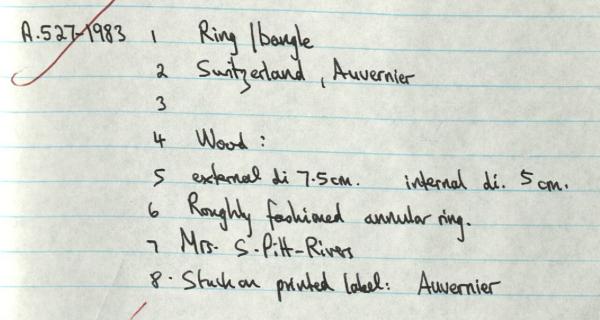 A.527-1983 1 Ring/bangle
2 Switzerland, Auvernier
3
4 Wood:
5 external di 7.5cm. internal di. 5cm.
6 Roughly fashioned annular ring.
7 Mrs. S. Pitt-Rivers
8. Stuck on printed label: Auvernier